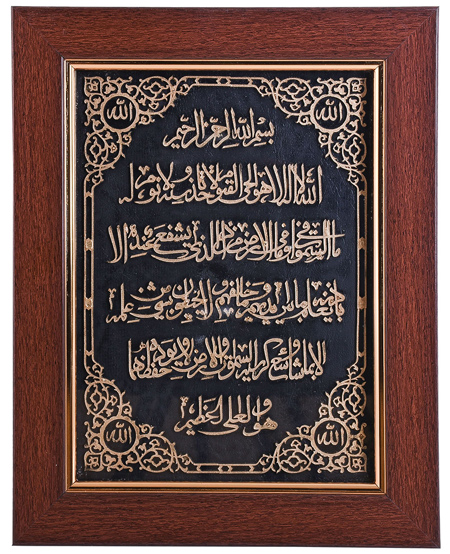 الله الله
بسم الله الرحمن الرحيم
الله لا اله الا هو الحي القيوم لا تاخذه سنة ولا نوم له
ما في السموات وما في الارض من ذا الذي يشفع عنده الا
باذنه يعلم ما بين ايديهم وما خلفهم ولا يحيطون بشيء من علمه
الا بما شاء وسع كرسيه السموات والارض ولا يوده حفظهما
وهو العلي العظيم
الله الله